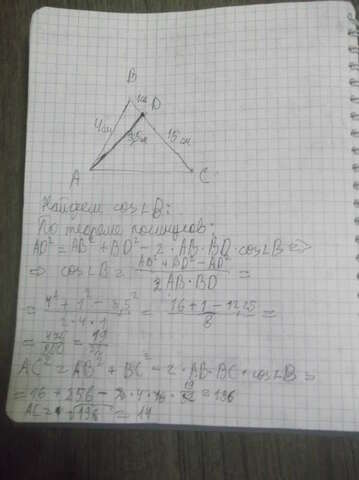 B
1см D
4см 3,5см 15см
A C
Найдем cos∠B:
По теореме косинусов:
AD² = AB² + BD² - 2·AB·BD·cos∠B ⇒
⇒ cos∠B = (AB² + BD² - AD²)/(2AB·BD) =
= (4² + 1² - 3,5²)/(2·4·1) = (16 + 1 - 12,25)/8 =
= 19/32
AC² = AB² + BC² - 2·AB·BC·cos∠B =
= 16 + 256 - 2·4·16·19/32 = 196
AC = √196 = 14